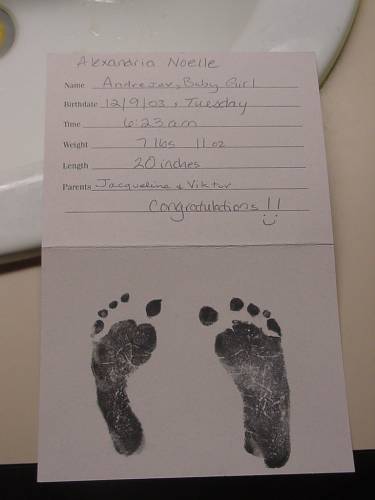 Alexandria Noelle
Name Andrejev, Baby Girl
Birthdate 12/9/03, Tuesday
Time 6:23 am
Weight 7 lbs 11 oz
Length 20 inches
Parents Jacqueline & Viktor
Congratulations!!